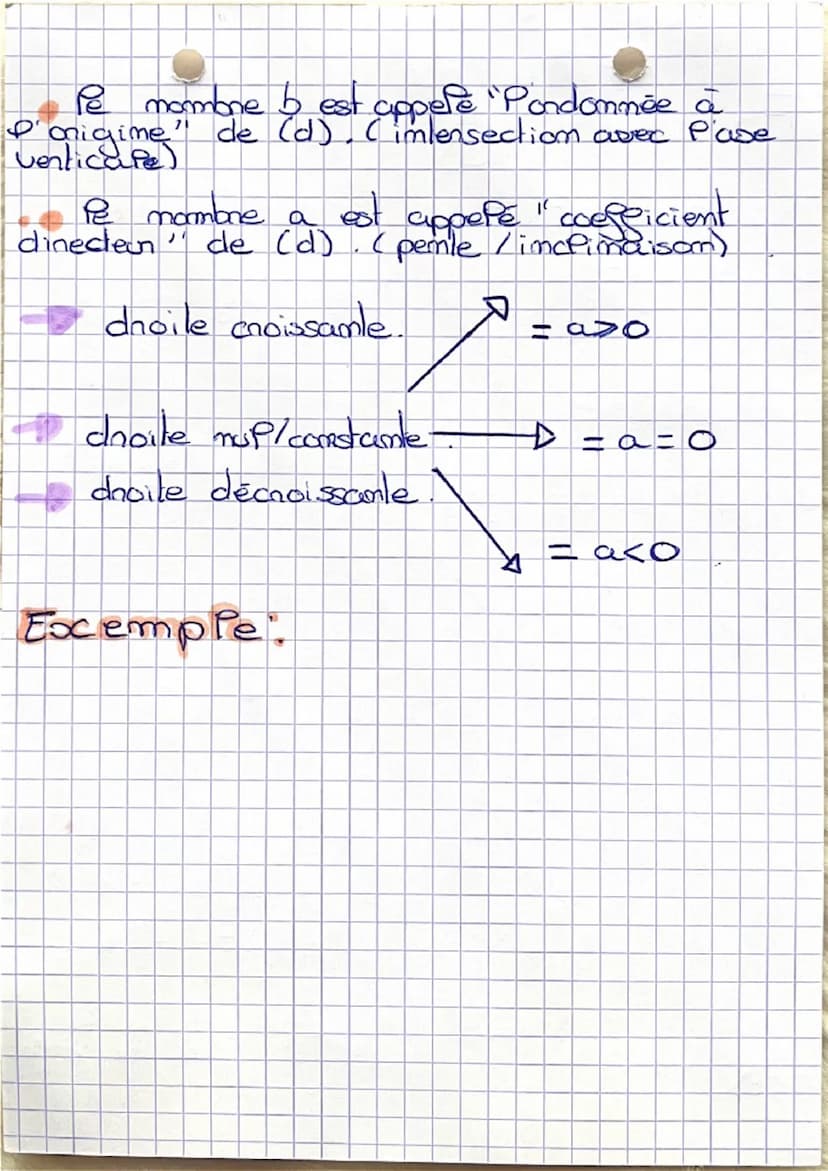 le nombre b est appelé "l'ordonnée à
l'origine" de (d). (intersection avec l'axe
verticale)
le nombre a est appelé "coefficient
directeur" de (d). (pente / inclinaison)
droite croissante. = a>0
droite nul/constante. = a=0
droite décroissante.
= a<0
Exemple: